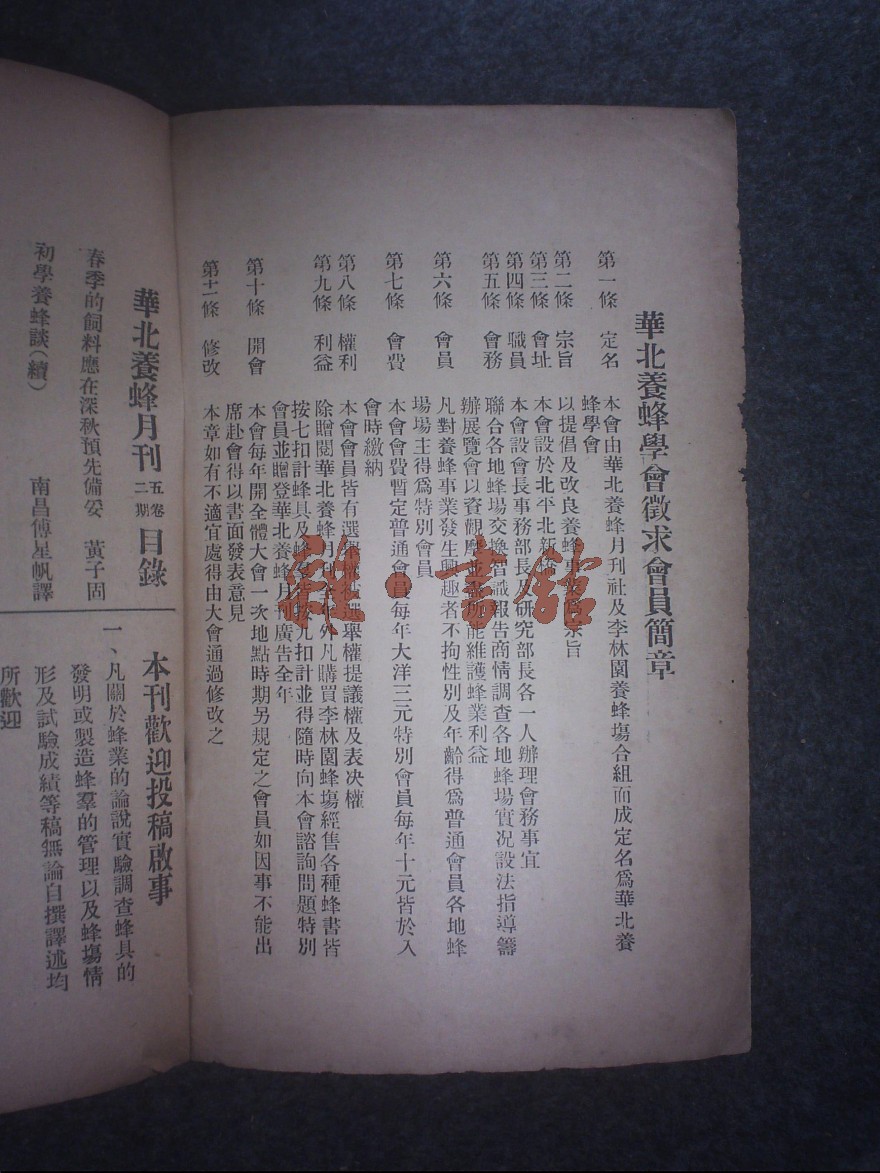 華北養蜂學會徵求會員簡章
第一條 定名 本會由華北養蜂月刊社及李林園養蜂塲合組而成定名爲華北養
蜂學會
第二條 宗旨 以提倡及改良養蜂事業爲宗旨
第三條 會址 本會設於北平北新橋
第四條 職員 本會設會長事務部長研究部長各一人辦理會務事宜
第五條 會務 聯合各地蜂場交換智識報告商情調查各地蜂場實况設法指導籌
辦展覽會以資觀摩並盡所能維護蜂業利益
第六條 會員 凡對養蜂事業發生興趣者不拘性別及年齡得爲普通會員各地蜂
場場主得爲特別會員
第七條 會費 本會會費暫定普通會員每年大洋三元特別會員每年十元皆於入
會時繳納
第八條 權利 本會會員皆有選舉權被選舉權提議權及表决權
第九條 利益 除贈閱華北養蜂月刊全年外凡購買李林園蜂塲經售各種蜂書皆
按七扣計蜂具及蜂羣皆按九扣計並得隨時向本會諮詢問題特別
會員並贈登華北養蜂月刊廣告全年
第十條 開會 本會每年開全體大會一次地點時期另規定之會員如因事不能出
席赴會得以書面發表意見
第十一條 修改 本章如有不適宜處得由大會通過修改之
華北養蜂月刊 五卷二期 目錄
春季的飼料應在深秋預先備妥 黃子固
初學養蜂談(續) 南昌傅星帆譯
本刊歡迎投稿啟事
一、凡關於蜂業的論說實驗調查蜂具的
發明或製造蜂羣的管理以及蜂塲情
形及試驗成績等稿無論自撰譯述均
所歡迎
雜·書館